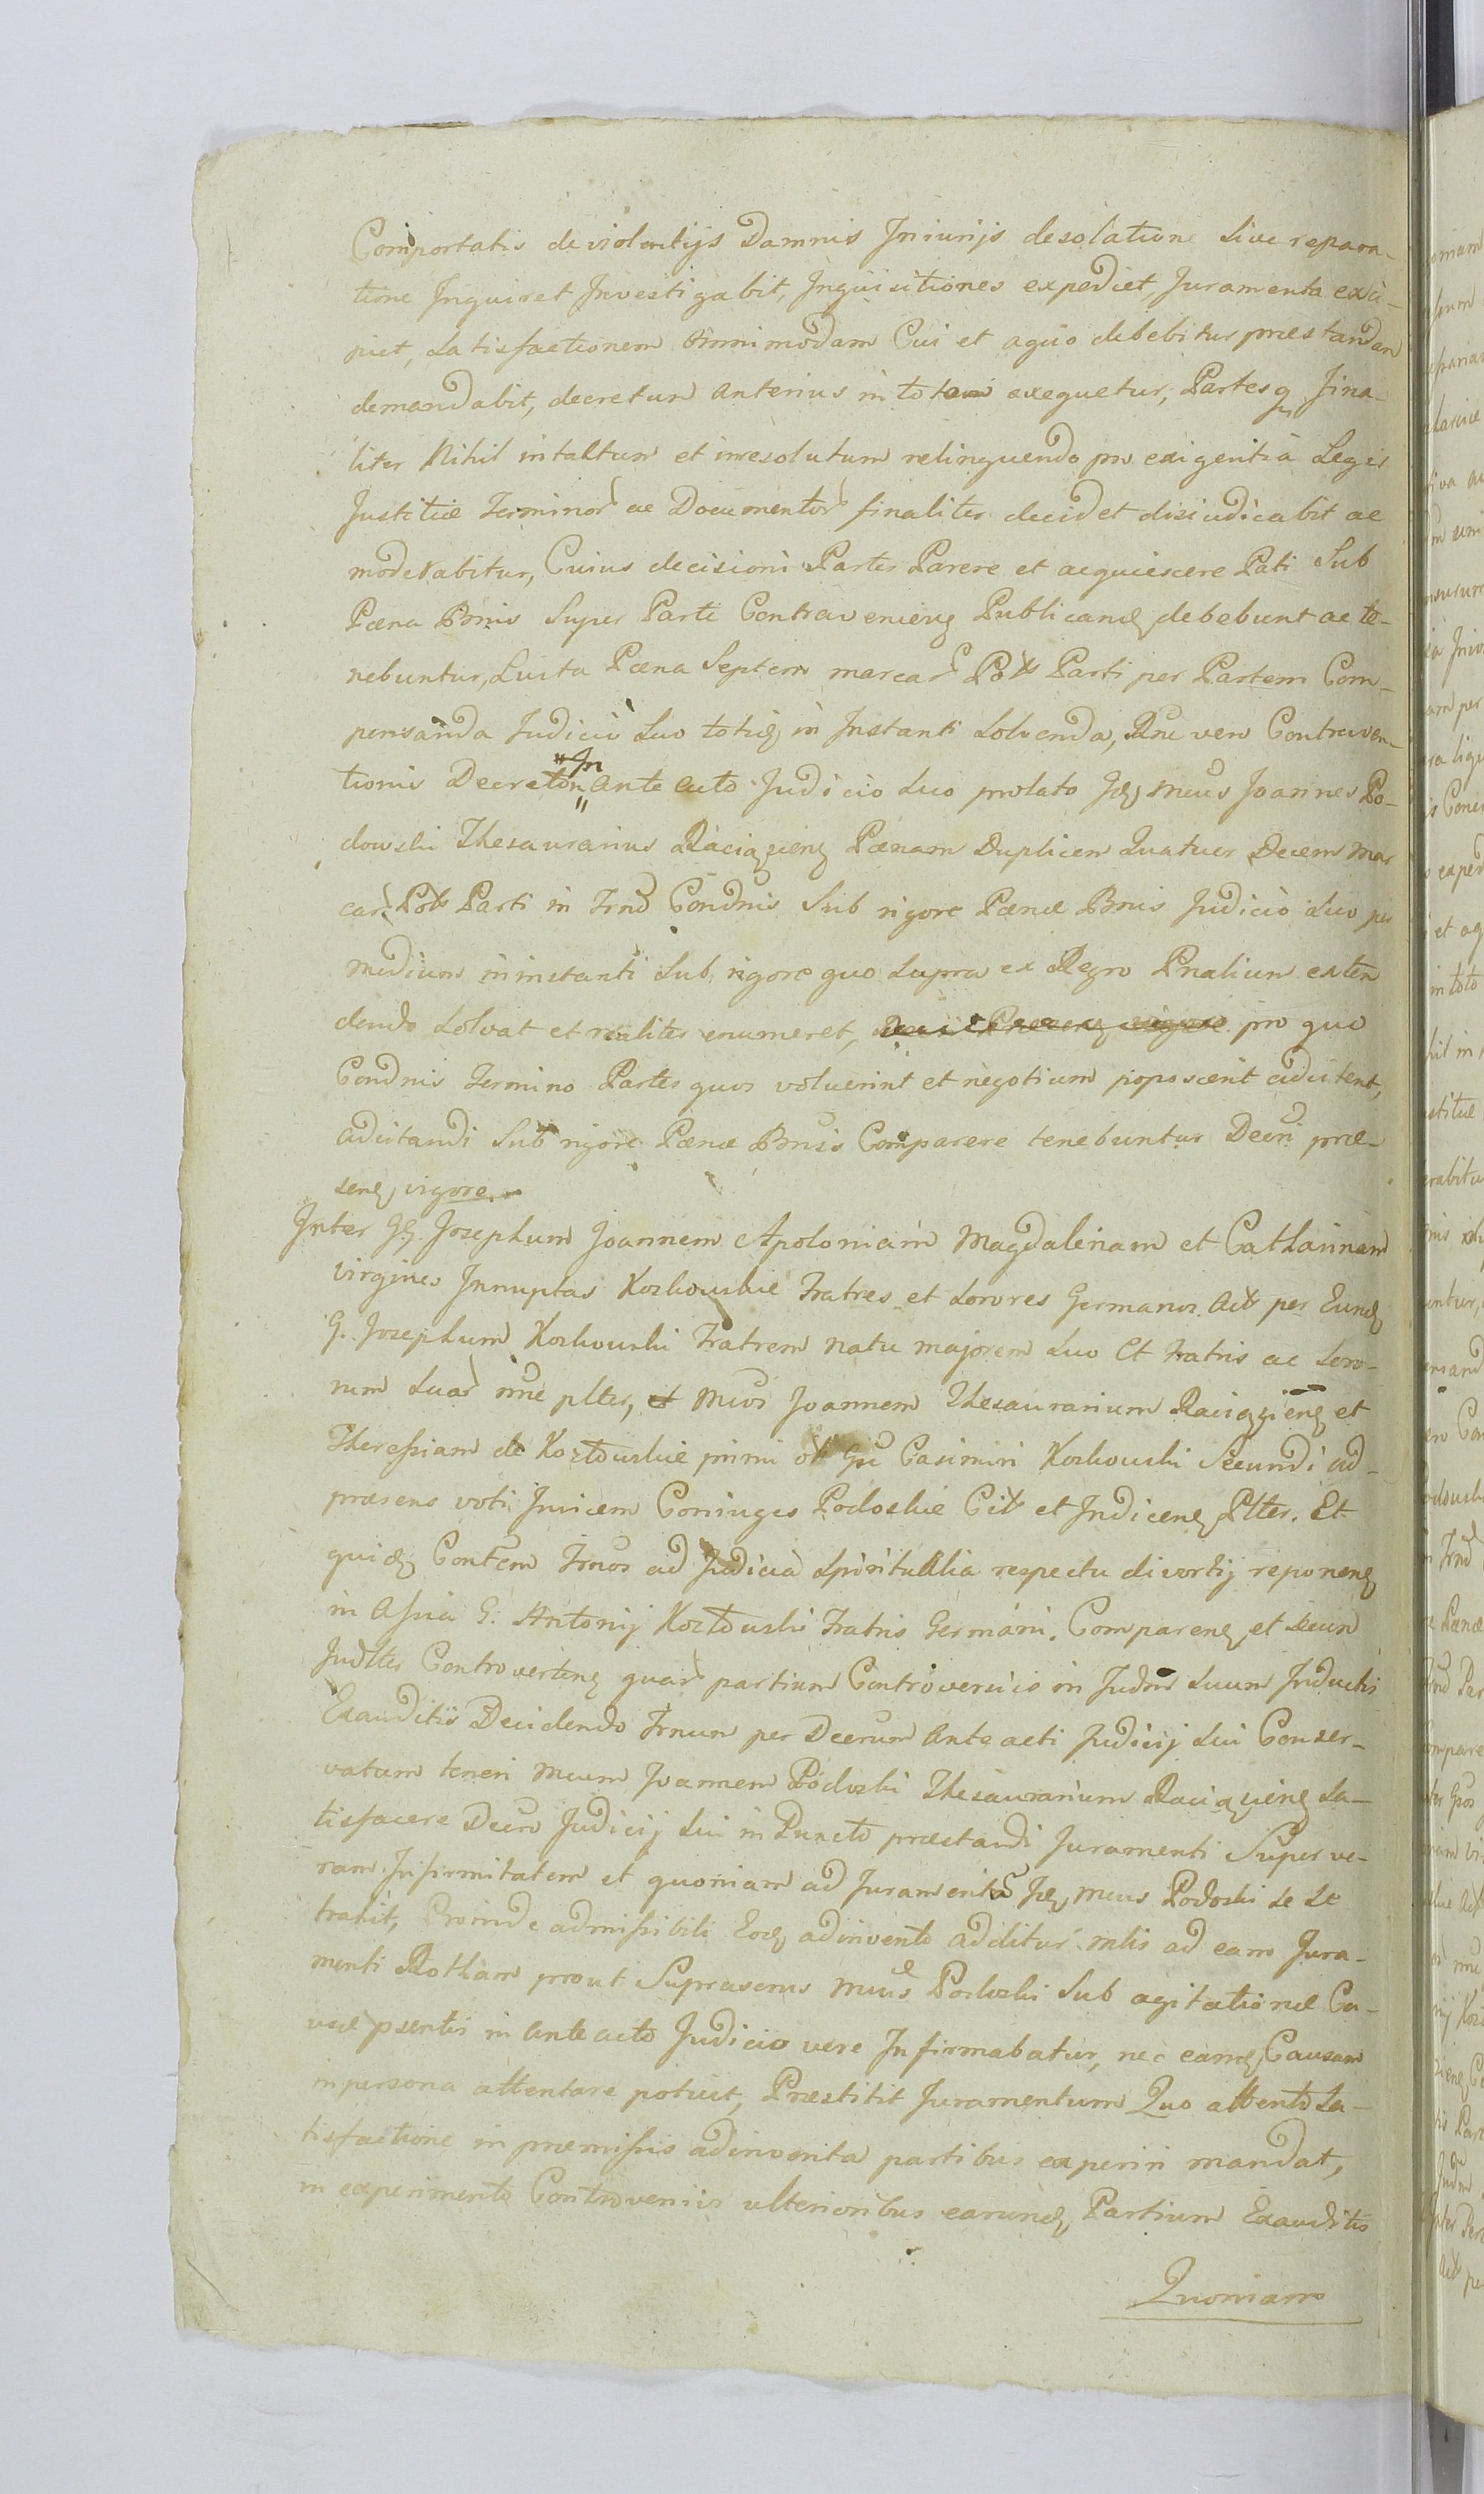 Comportatis de violentijs Damnis Jniurijs desolatione sive repara-
tione Jnquiret Jnvestigabit, Jnquisitiones expediet, Juramenta exci-
piet, satisfactionem omnimodam Cui et aquo debebitur præstandam
demandabit, decretum anterius in totum exequetur, Partesq fina-
liter Nihil intactum et inresolutum relinquendo pro exigentia Legis
Justitiæ Terminor ac Documentor finaliter decidet disiudicabit ac
moderabitur, Cuius decisioni Partes Parere et acquiescere Pati Sub
Pæna Bnis Super Parte Contraveniens Publicand debebunt ac te-
nebuntur, Luita Pæna Septem marcar Pol Parti per Partem Com-
pensanda Judicio suo totid in Jnstanti solvenda, vero Contraven-
tionis Decreto "Jn Ante acto Judicio suo prolato Jd Mcus Joannes Po-
dowski Thesaurarius Raciązien Pænam Duplicem Quatuor Decem Mar
car Pol Parti in Trno Condnis Sub rigore Pænæ Bnis Judicio suo per
medium ininstanti sub rigore quo supra ex Regro Pnalium exten
dendo solvat et realiter enumeret, pro quo
Condnis Termino Partes quos voluerint et negotium poposcerit adcitent,
adcitandi Sub rigore Pænæ Bnis Comparere tenebuntur Decri præ-
sen vigore.
Jnter GG. Josephum Joannem Apoloniam Magdalenam et Catharinam
virgines Jnnuptas Kozłowskie Fratres et sorores Germanos Act per Eund
G. Josephum Kozłowski Fratrem natu majorem suo Et Fratris ac soro-
rum suar nne plter, et Mcos Joannem Thesaurarium Raciązien et
Theressiam de Kozłowskie primi olt Gsi Casimiri Kozłowski Secundi ad-
præsens voti Jnvicem Coniuges Podoskie Cit et Jndicen Plter. Et
quid Contem Trnos ad Judicia Spiritualia respectu divortij reponen
in Assia G. Antonij Kozłowski Fratris Germani. Comparen et secum
Judlter Controverten quar partium Controversiis in Judm suum Jnductis
Exauditis Decidendo Trnum per Decrum Ante acti Judicij sui Conser-
vatum teneri Mcum Joannem Podoski Thesaurarium Raciązien sa-
tisfacere Decro Judicij sui in Puncto præstandi Juramenti Super ve-
ram Jnfirmitatem et quoniam ad Juramenta Jd Mcus Podoski se se
trahit, Proinde admissibili Eod adinvento additur mlis ad eam Jura-
menti Rotham prout Suprascrus Mcus Podoski Sub agitatione Ca-
usæ psentis in Ante acto Judicio vere Jnfirmabatur, nec eamd Causam
inpersona attentare potuit, Præstitit Juramentum Quo attento sa-
tisfactione in præmissis adinventa partibus experiri mandat,
in experimento Controversiis ulterioribus earund Partium Exauditis
Quoniam